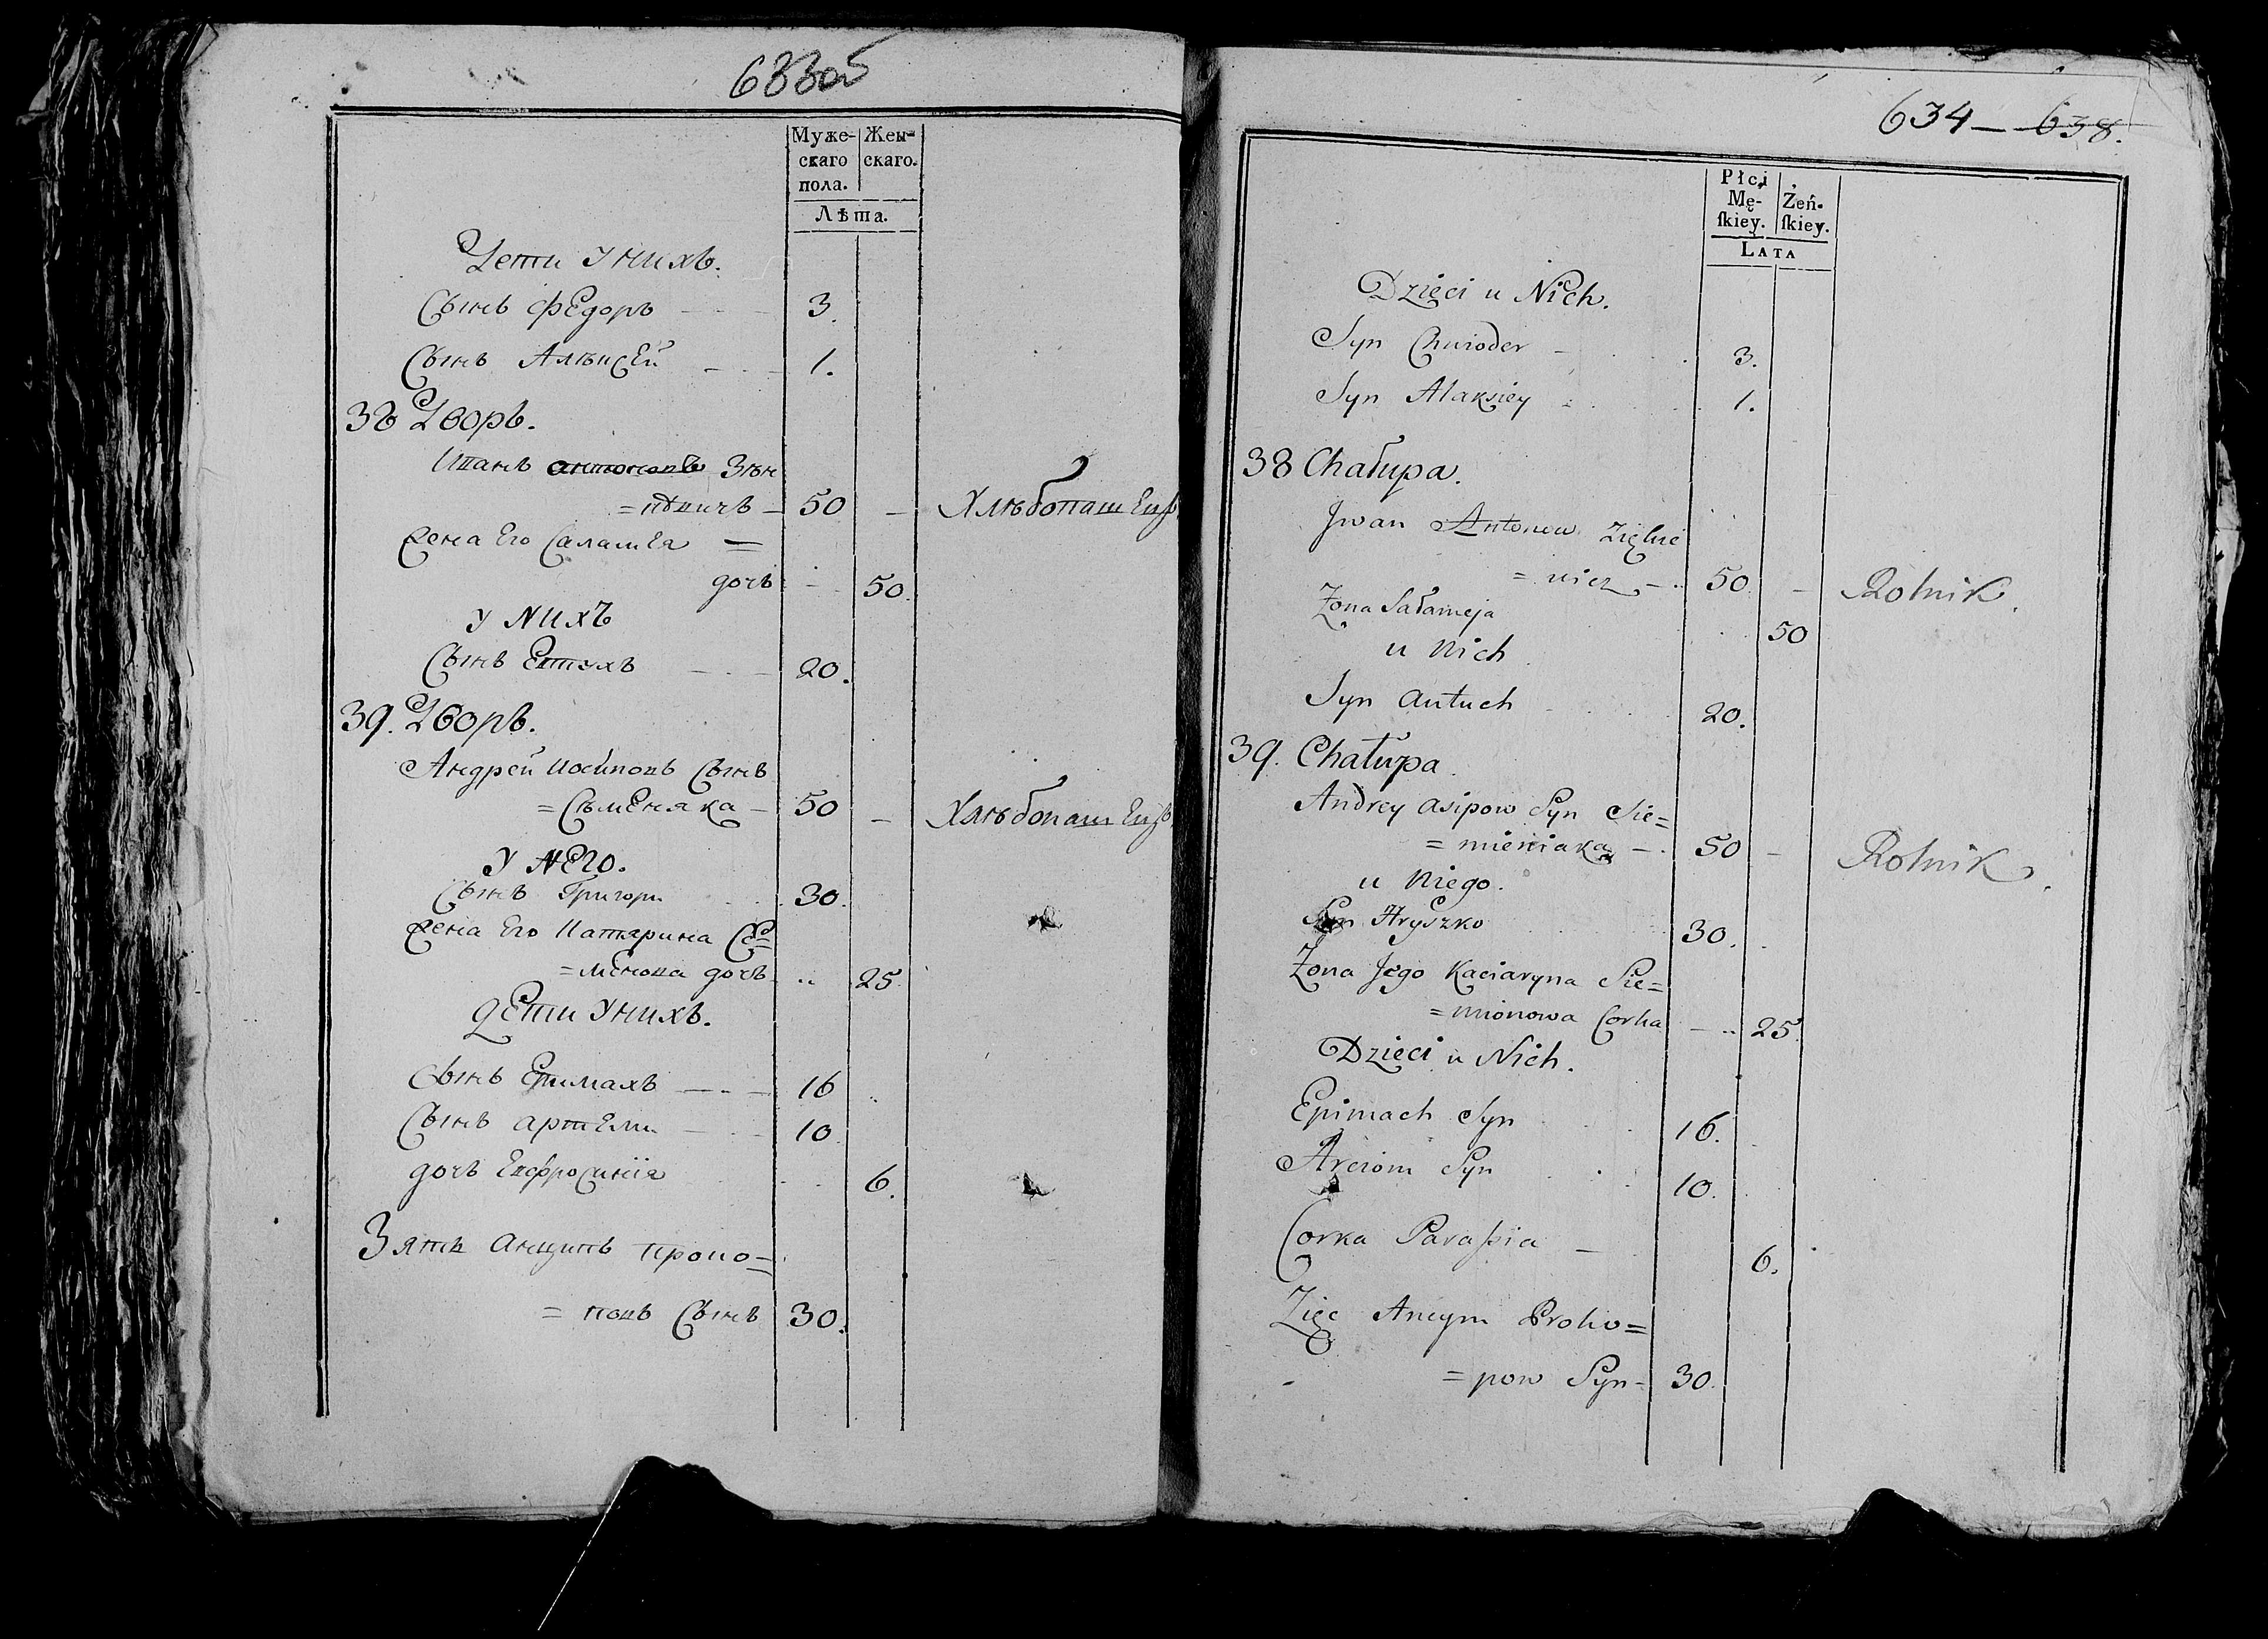 633об
Муже-
скаго
пола.
Жен-
скаго.
Лѣта.
Дети У нихъ.
Сынъ Федоръ 3.
Сынъ Алѣксей 1.
38 Дворъ.
Иванъ Антоновъ Зѣн
=кѣвичъ — 50 — Хлѣбопашецъ
Жена Его Саламея =
дочь 50.
У нихъ
Сынъ Евтухъ 20.
39. Дворъ.
Андрей Иосиповъ Сынъ
=Сѣменяка — 50 — Хлѣбопашецъ
У него.
Сынъ Григори 30.
Жена Его Катярина Се=
=менова дочь 25
Дети У нихъ.
Сынъ Епимахъ 16
Сынъ Артеми 10
дочь Евфросинїя 6.
Зять Анципъ Проко=
=повъ Сынъ 30.
634 — 638.
Płci
Mę-
ſkiey.
Żeń-
ſkiey.
LATA
Dzięci u Nich.
Syn Chwioder 3.
Syn Alaksiey 1.
38 Chałupa.
Jwan Antonow
=wicz — 50 — Rolnik.
Żona Sałameja 50
u Nich
Syn Autuch 20.
39. Chałupa.
Andrey Asipow Syn Sie=
=mieniaka — 50 — Rolnik.
u Niego.
Syn Hryszko 30.
Żona Jego Kaciaryna Sie=
=mionowa Corka 25.
Dzięci u Nich.
Epimach Syn 16.
Arciom Syn 10.
Corka Paraſia 6.
Zięc Ancyp Proko=
=pow Syn 30.